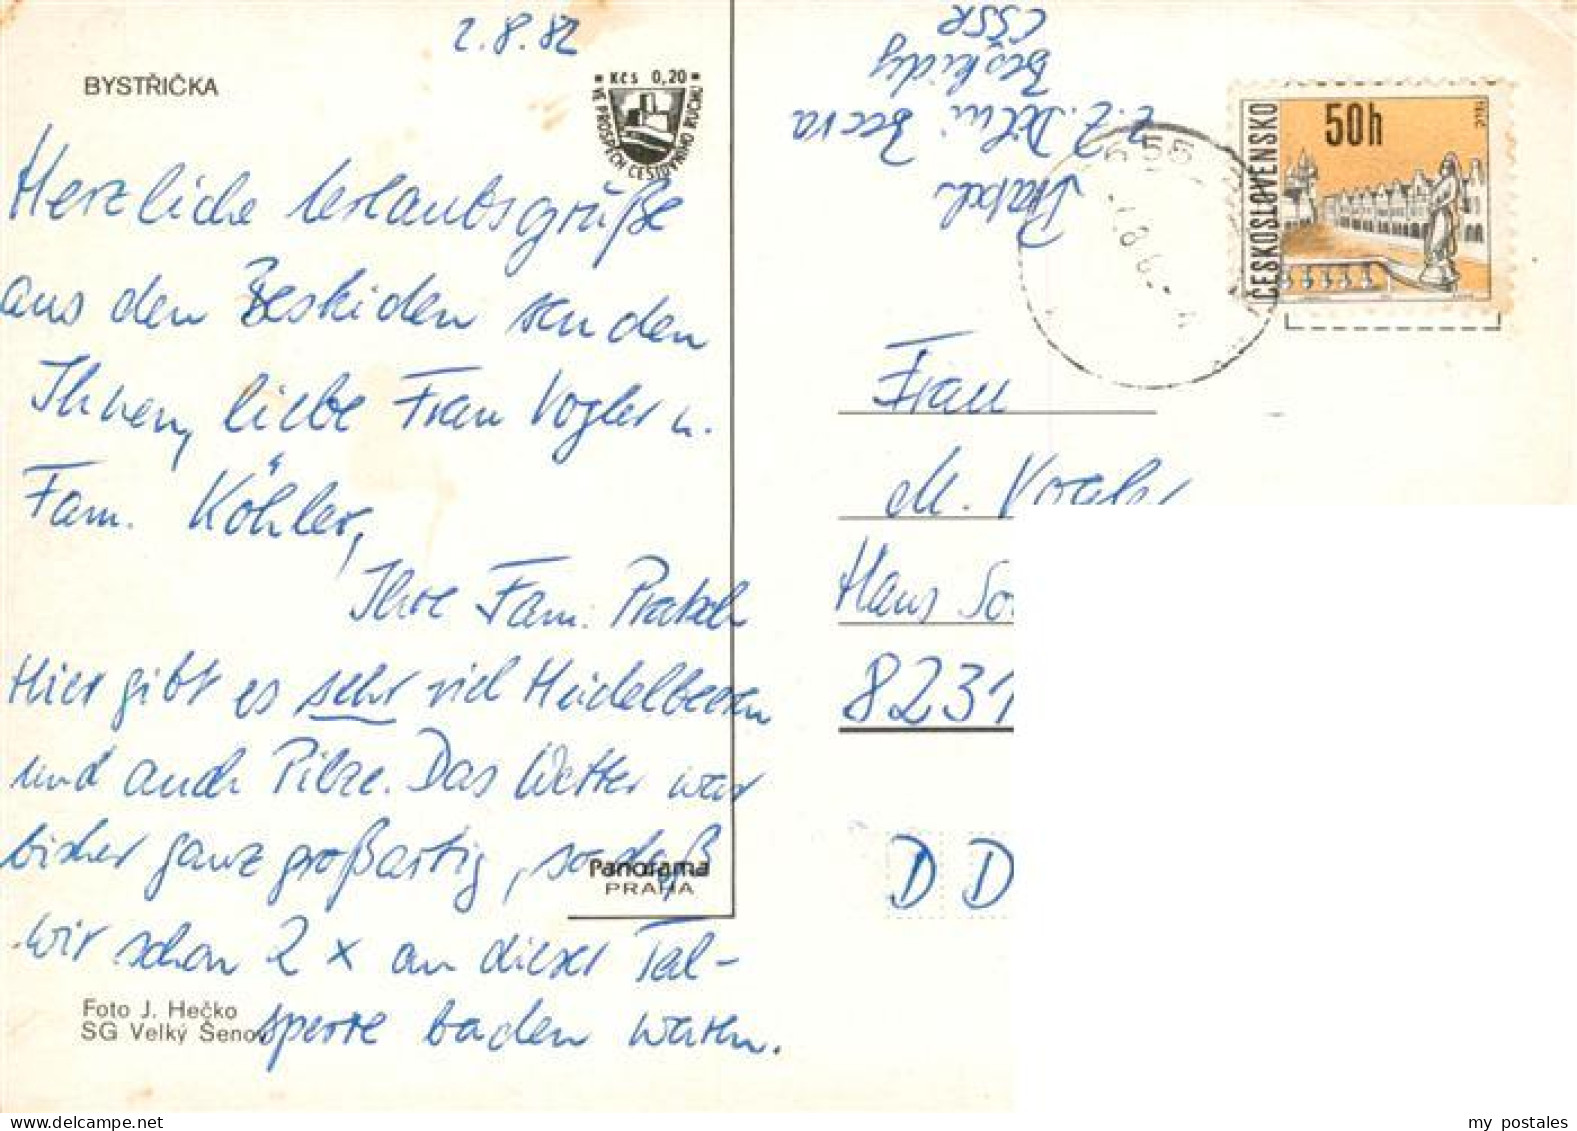 2.8.82
BYSTŘIČKA
KČS 0,20
VE PROSPĚCH CESTOVNÍHO RUCHU
Herzliche Urlaubsgrüße
aus den Beskiden senden
Ihnen, liebe Frau Vogler u.
Fam. Köhler,
Ihre Fam. Pratsch
Hier gibt es sehr viel Heidelbeeren
und auch Pilze. Das Wetter war
bisher ganz großartig, sodaß
wir schon 2 x an dieser Tal-
sperre baden waren.
Panorama
PRAHA
Foto J. Hečko
SG Velký Šenov
Pratsch
Z.Z. Dolni Becva
Beskidy
ČSSR
ČESKOSLOVENSKO
50h
TELČ
655
Frau
M. Vogler
Hans So
8231
D D
my postales